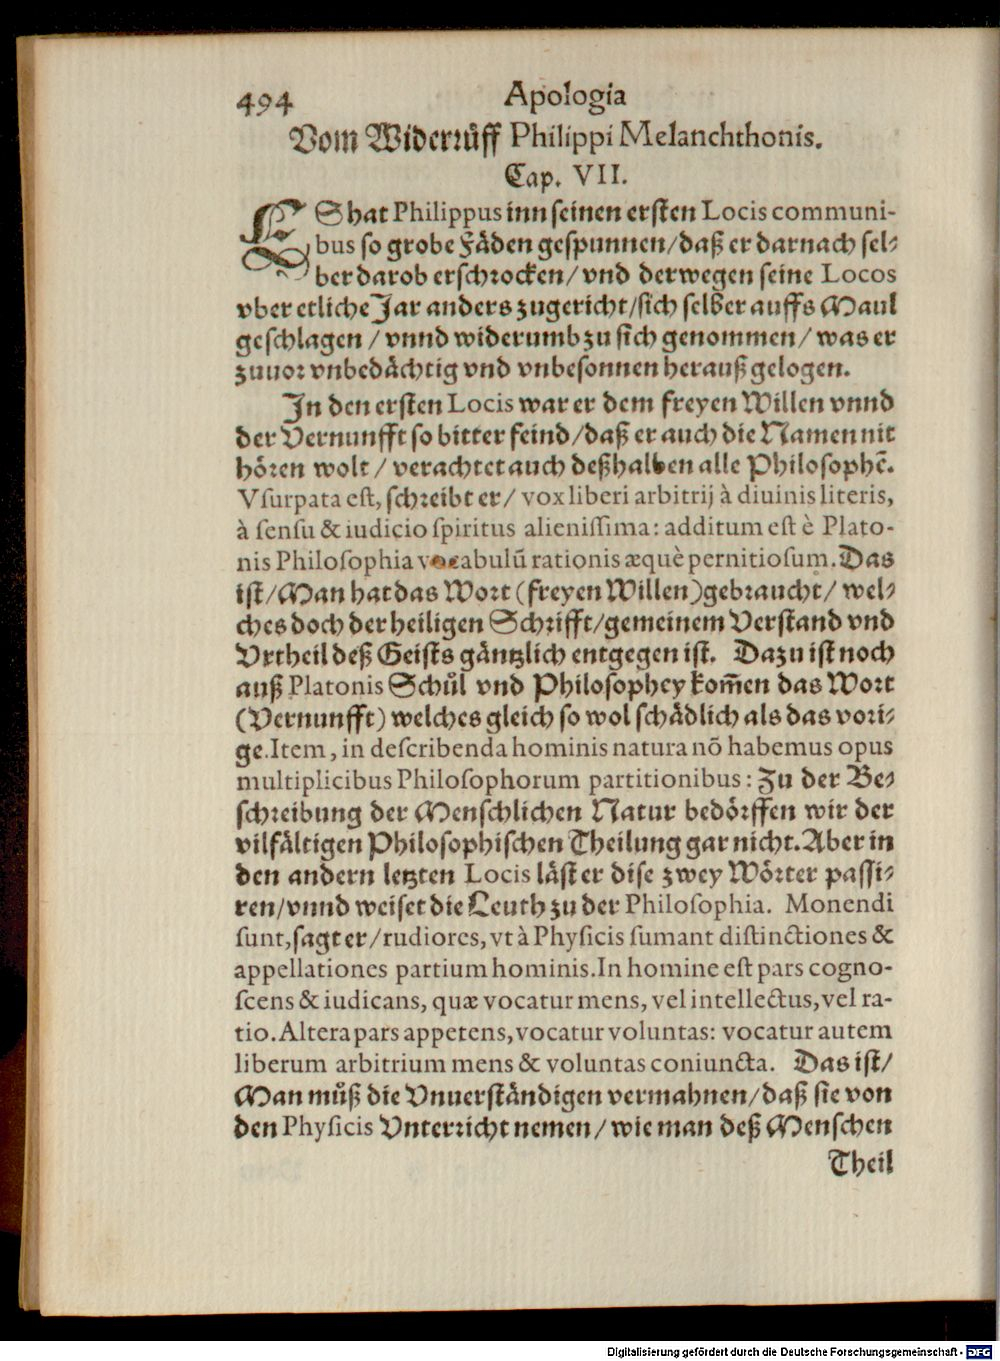 494 Apologia
Vom Widerrůff Philippi Melanchthonis.
Cap. VII.
ES hat Philippus inn seinen ersten Locis communi-
bus so grobe Fäden gespunnen/daß er darnach sel-
ber darob erschrocken/vnd derwegen seine Locos
vber etliche Jar anders zugericht/sich selber auffs Maul
geschlagen/vnnd widerumb zu sich genommen/was er
zuuor vnbedächtig vnd vnbesonnen herauß gelogen.
In den ersten Locis war er dem freyen Willen vnnd
der Vernunfft so bitter feind/daß er auch die Namen nit
hören wolt/verachtet auch deßhalben alle Philosophē.
Vsurpata est, schreibt er/vox liberi arbitrij à diuinis literis,
à sensu & iudicio spiritus alienissima: additum est è Plato-
nis Philosophia vocabulū rationis æquè pernitiosum. Das
ist/Man hat das Wort (freyen Willen) gebraucht/wel-
ches doch der heiligen Schrifft/gemeinem Verstand vnd
Vrtheil deß Geists gäntzlich entgegen ist. Dazu ist noch
auß Platonis Schůl vnd Philosophey kom̄en das Wort
(Vernunfft) welches gleich so wol schädlich als das vori-
ge. Item, in describenda hominis natura nō habemus opus
multiplicibus Philosophorum partitionibus: Zu der Be-
schreibung der Menschlichen Natur bedörffen wir der
vilfältigen Philosophischen Theilung gar nicht. Aber in
den andern letzten Locis läst er dise zwey Wörter passi-
ren/vnnd weiset die Leuth zu der Philosophia. Monendi
sunt, sagt er/rudiores, vt à Physicis sumant distinctiones &
appellationes partium hominis. In homine est pars cogno-
scens & iudicans, quæ vocatur mens, vel intellectus, vel ra-
tio. Altera pars appetens, vocatur voluntas: vocatur autem
liberum arbitrium mens & voluntas coniuncta. Das ist/
Man můß die Vnuerständigen vermahnen/daß sie von
den Physicis Vnterricht nemen/wie man deß Menschen
Theil
Digitalisierung gefördert durch die Deutsche Forschungsgemeinschaft - DFG